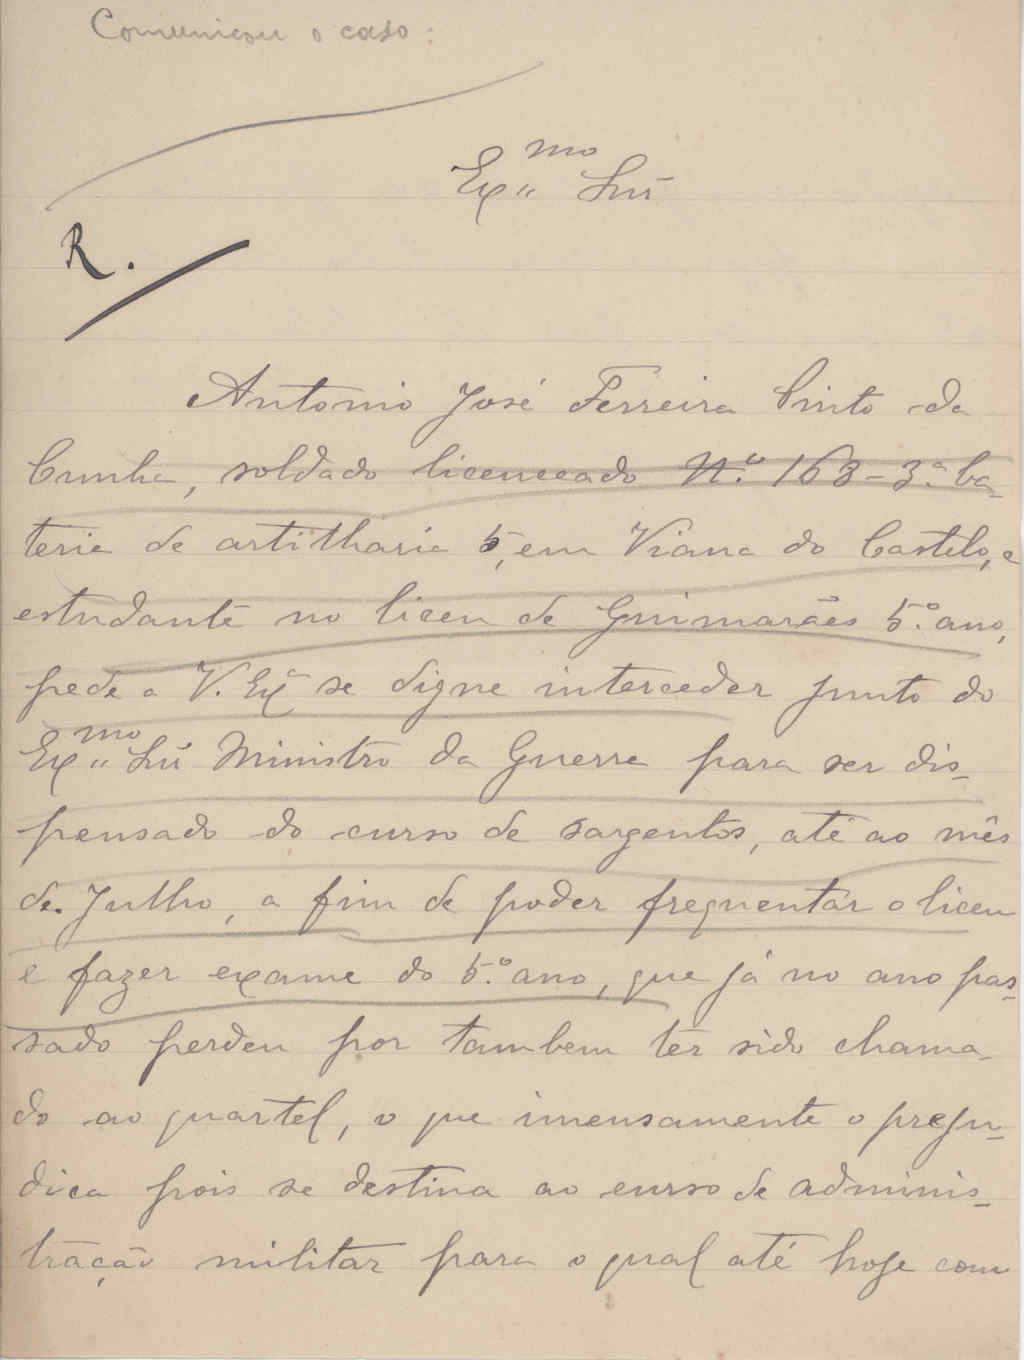 Comunicou o caso:
Exmo Snr
R.
Antonio José Ferreira Pinto da
Cunha, soldado licenceado Nº 163-3ª ba-
teria de artilharia 5, em Viana do Castelo, e
estudante no liceu de Guimarães 5.º ano,
pede a V. Exª se digne interceder junto do
Exmo Snr Ministro da Guerra para ser dis-
pensado do curso de sargentos, até ao mês
de Julho, a fim de poder frequentar o liceu
e fazer exame do 5.º ano, que já no ano pas-
sado perdeu por tambem ter sido chama-
do ao quartel, o que imensamente o preju-
dica pois se destina ao curso de adminis-
tração militar para o qual até hoje com